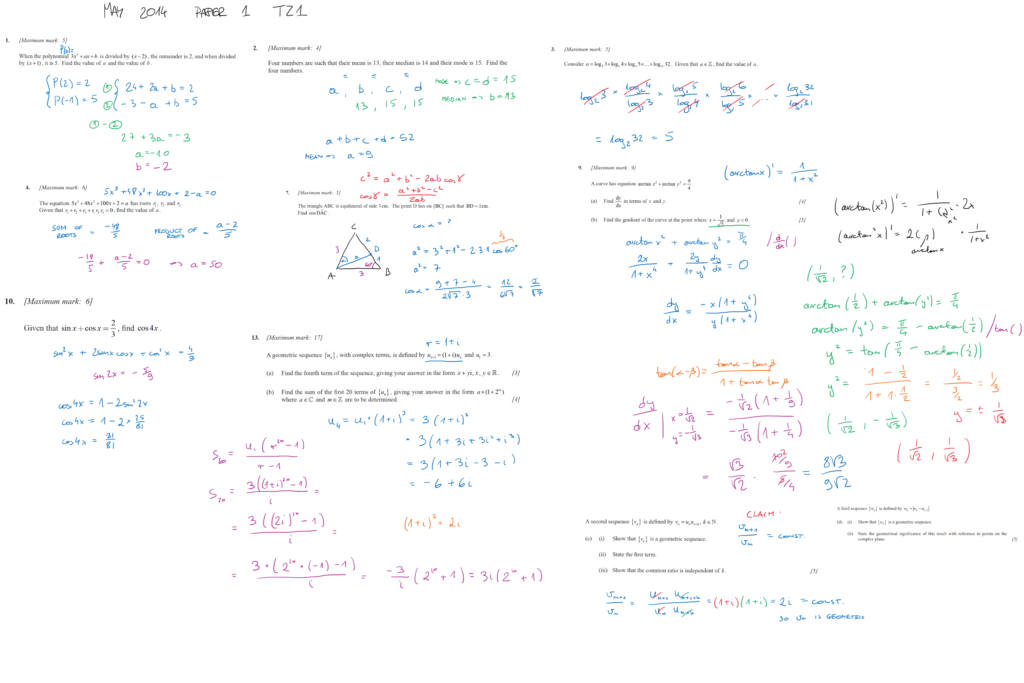 MAY 2014 PAPER 1 TZ1
1. [Maximum mark: 5]
P(x)=
When the polynomial 3x³ + ax + b is divided by (x − 2), the remainder is 2, and when divided
by (x + 1), it is 5. Find the value of a and the value of b.
P(2) = 2 ① 24 + 2a + b = 2
P(-1) = 5 ② -3 - a + b = 5
① - ②
27 + 3a = -3
a = -10
b = -2
2. [Maximum mark: 4]
Four numbers are such that their mean is 13, their median is 14 and their mode is 15. Find the
four numbers.
a, b, c, d MODE => c = d = 15
13, 15, 15 MEDIAN => b = 13
a + b + c + d = 52
MEAN => a = 9
3. [Maximum mark: 5]
Consider a = log₂ 3 × log₃ 4 × log₄ 5 × ... × log₃₁ 32. Given that a ∈ ℤ, find the value of a.
log₂3 × log₂4/log₂3 × log₂5/log₂4 × log₂6/log₂5 × ... × log₂32/log₂31
= log₂32 = 5
4. [Maximum mark: 6]
5x³ + 48x² + 100x + 2 - a = 0
The equation 5x³ + 48x² + 100x + 2 = a has roots r₁, r₂ and r₃.
Given that r₁ + r₂ + r₃ + r₁r₂r₃ = 0, find the value of a.
SUM OF ROOTS = -48/5 PRODUCT OF ROOTS = a-2/5
-48/5 + a-2/5 = 0 => a = 50
c² = a² + b² - 2ab cos γ
cos γ = a² + b² - c²/2ab
7. [Maximum mark: 5]
The triangle ABC is equilateral of side 3 cm. The point D lies on [BC] such that BD = 1 cm.
Find cos DÂC.
C
3 2
D
a 1
60°
A 3 B
cos α = ?
a² = 3² + 1² - 2·3·1 cos 60° 1/2
a² = 7
cos α = 9+7-4/2√7·3 = 12/6√7 = 2/√7
9. [Maximum mark: 9]
(arctan x)' = 1/1+x²
A curve has equation arctan x² + arctan y² = π/4.
(a) Find dy/dx in terms of x and y. [4]
(b) Find the gradient of the curve at the point where x = 1/√2 and y < 0. [5]
(arctan(x²))' = 1/1+(x²)² · 2x
(arctan²x)' = 2( ) · 1/1+x²
arctan x
arctan x² + arctan y² = π/4 / d/dx( )
2x/1+x⁴ + 2y/1+y⁴ dy/dx = 0
dy/dx = -x(1+y⁴)/y(1+x⁴)
(1/√2, ?)
arctan(1/2) + arctan(y²) = π/4
arctan(y²) = π/4 - arctan(1/2) / tan( )
y² = tan(π/4 - arctan(1/2))
tan(α-β) = tan α - tan β/1 + tan α tan β
y² = 1 - 1/2/1 + 1·1/2 = 1/2/3/2 = 1/3
y = ± 1/√3
dy/dx | x = 1/√2 y = -1/√3 = -1/√2(1+1/9)/-1/√3(1+1/4)
(1/√2, -1/√3)
(1/√2, 1/√3)
= √3/√2 · 10/9/5/4 = 8√3/9√2
10. [Maximum mark: 6]
Given that sin x + cos x = 2/3, find cos 4x.
sin²x + 2sin x cos x + cos²x = 4/9
sin 2x = -5/9
cos 4x = 1 - 2sin²2x
cos 4x = 1 - 2 * 25/81
cos 4x = 31/81
r = 1+i
13. [Maximum mark: 17]
A geometric sequence {uₙ}, with complex terms, is defined by uₙ₊₁ = (1+i)uₙ and u₁ = 3.
(a) Find the fourth term of the sequence, giving your answer in the form x + yi, x, y ∈ ℝ. [3]
(b) Find the sum of the first 20 terms of {uₙ}, giving your answer in the form a × (1 + 2ᵐ)
where a ∈ ℂ and m ∈ ℤ are to be determined. [4]
u₄ = u₁ · (1+i)³ = 3(1+i)³
= 3(1+3i+3i²+i³)
= 3(1+3i-3-i)
= -6+6i
S₂₀ = u₁(r²⁰-1)/r-1
S₂₀ = 3((1+i)²⁰-1)/i =
= 3((2i)¹⁰-1)/i = (1+i)² = 2i
= 3·(2¹⁰·(-1)-1)/i = -3/i (2¹⁰+1) = 3i(2¹⁰+1)
A second sequence {vₙ} is defined by vₙ = uₙuₙ₊ₖ, k ∈ ℕ.
(c) (i) Show that {vₙ} is a geometric sequence.
(ii) State the first term.
(iii) Show that the common ratio is independent of k. [5]
CLAIM:
vₙ₊₁/vₙ = CONST.
A third sequence {wₙ} is defined by wₙ = |uₙ − uₙ₊₁|.
(d) (i) Show that {wₙ} is a geometric sequence.
(ii) State the geometrical significance of this result with reference to points on the
complex plane. [5]
vₙ₊₁/vₙ = uₙ₊₁ uₙ₊₁₊ₖ/uₙ uₙ₊ₖ = (1+i)(1+i) = 2i = CONST.
SO vₙ IS GEOMETRIC